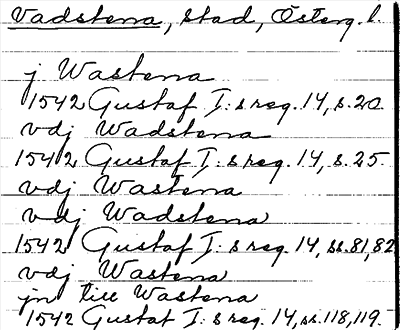 Vadstena, stad, Österg. l.
j Wastena
1542 Gustaf I:s reg. 14, s. 20
vdj Wadstena
1542 Gustaf I:s reg. 14, s. 25
vdj Wastena
vdj Wadstena
1542 Gustaf I:s reg. 14, ss. 81, 82
vdj Wastena
jn till Wastena
1542 Gustaf I:s reg. 14, ss. 118, 119.